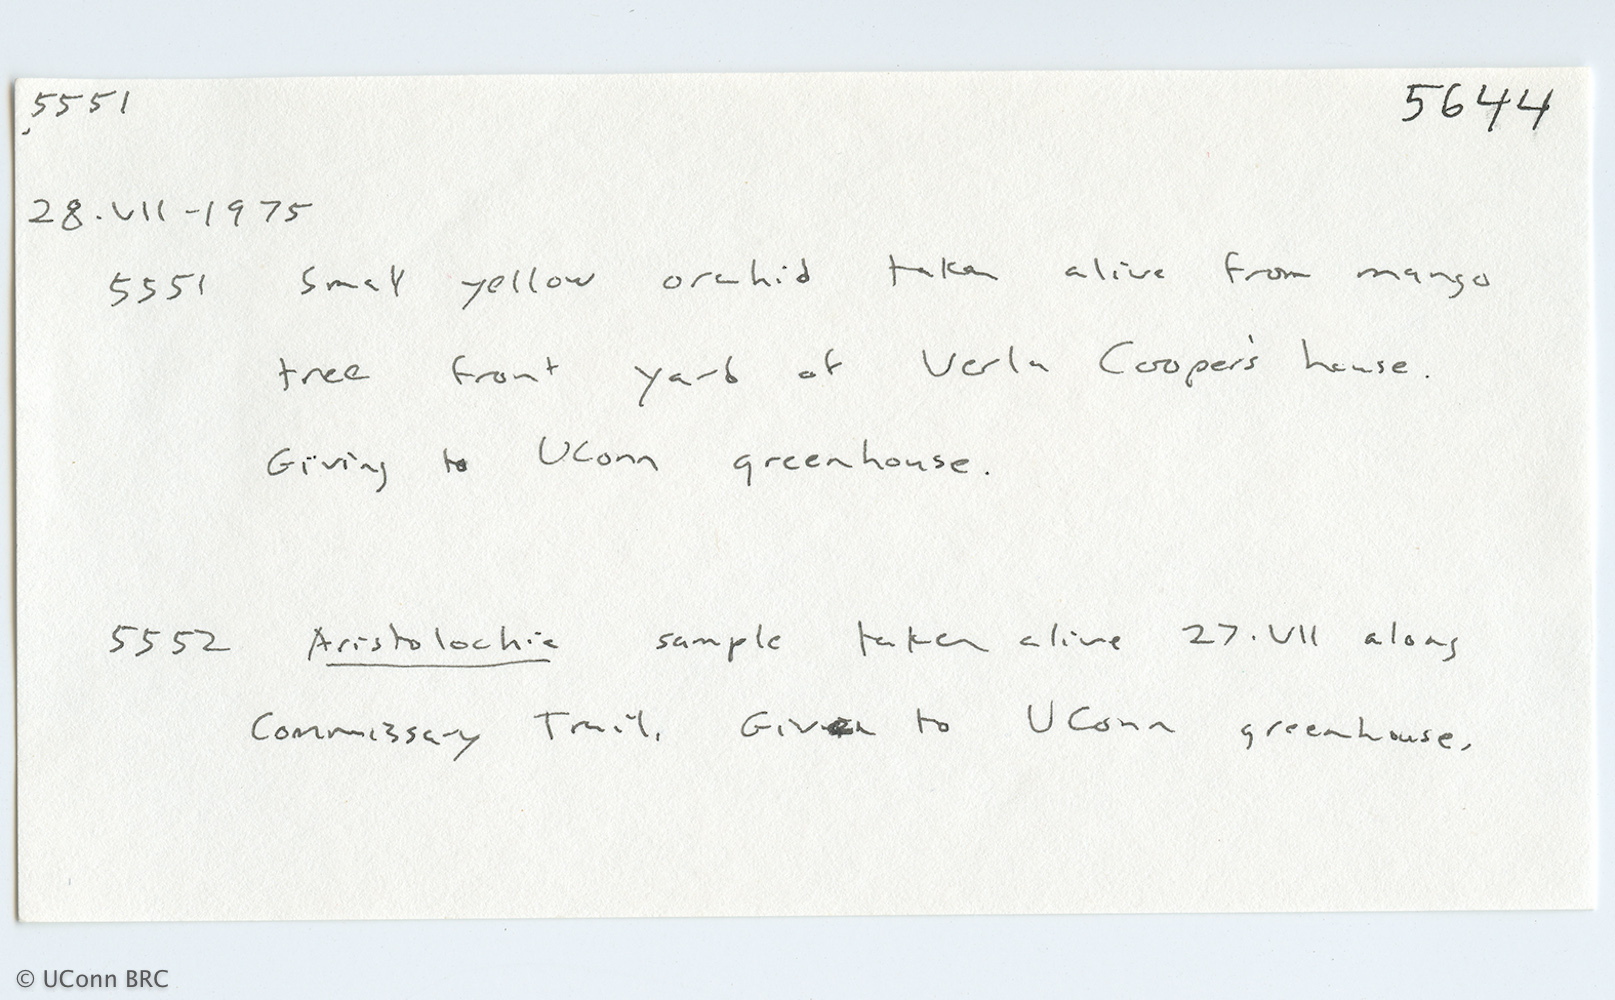 5551 5644
28.VII-1975
5551 Small yellow orchid taken alive from mango
tree front yard of Verla Cooper's house.
Giving to UConn greenhouse.
5552 Aristolochia sample taken alive 27.VII along
Commissary Trail. Given to UConn greenhouse.
© UConn BRC